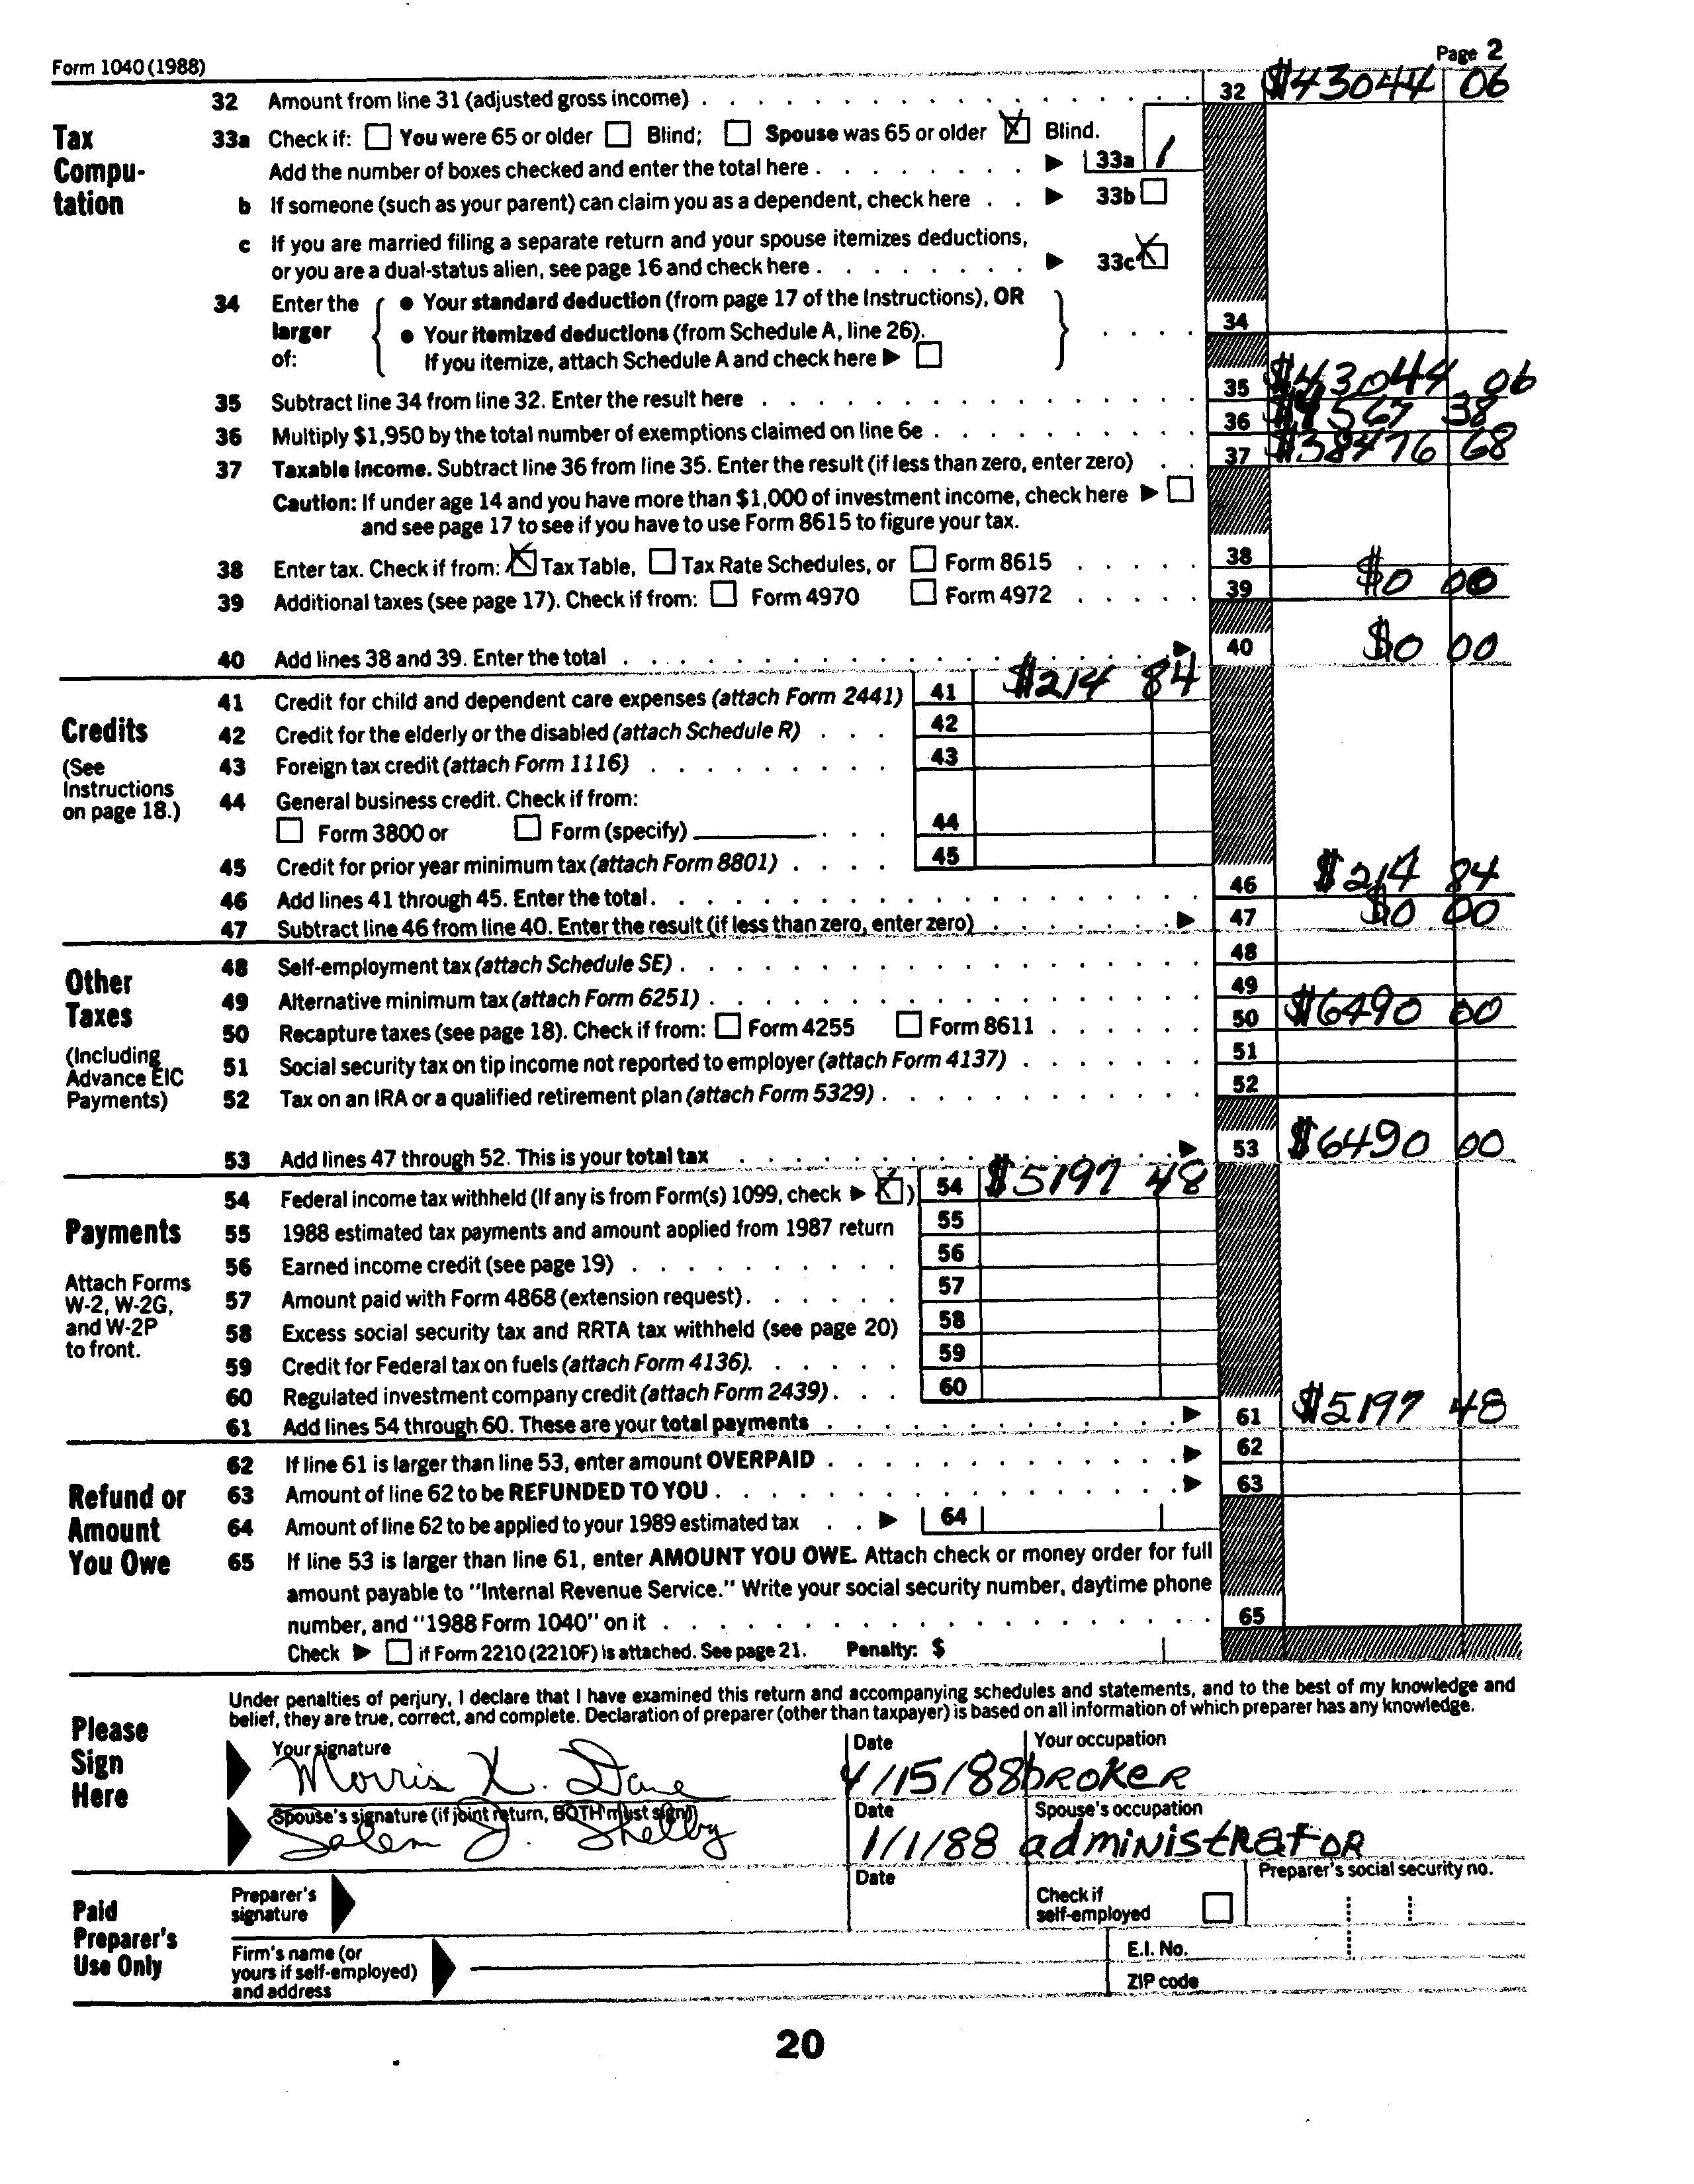 Form 1040 (1988) Page 2
Tax Compu- tation
32 Amount from line 31 (adjusted gross income) 32 $43044 06
33a Check if: You were 65 or older Blind; Spouse was 65 or older X Blind.
Add the number of boxes checked and enter the total here 33a 1
b If someone (such as your parent) can claim you as a dependent, check here 33b
c If you are married filing a separate return and your spouse itemizes deductions,
or you are a dual-status alien, see page 16 and check here 33c X
34 Enter the larger of: { • Your standard deduction (from page 17 of the Instructions), OR
• Your itemized deductions (from Schedule A, line 26). } 34
If you itemize, attach Schedule A and check here
35 Subtract line 34 from line 32. Enter the result here 35 $43044 06
36 Multiply $1,950 by the total number of exemptions claimed on line 6e 36 $4567 38
37 Taxable income. Subtract line 36 from line 35. Enter the result (if less than zero, enter zero) 37 $38476 68
Caution: If under age 14 and you have more than $1,000 of investment income, check here
and see page 17 to see if you have to use Form 8615 to figure your tax.
38 Enter tax. Check if from: X Tax Table, Tax Rate Schedules, or Form 8615 38
39 Additional taxes (see page 17). Check if from: Form 4970 Form 4972 39 $0 00
40 Add lines 38 and 39. Enter the total 40 $0 00
Credits
(See Instructions on page 18.)
41 Credit for child and dependent care expenses (attach Form 2441) 41 $214 84
42 Credit for the elderly or the disabled (attach Schedule R) 42
43 Foreign tax credit (attach Form 1116) 43
44 General business credit. Check if from:
Form 3800 or Form (specify) 44
45 Credit for prior year minimum tax (attach Form 8801) 45
46 Add lines 41 through 45. Enter the total 46 $214 84
47 Subtract line 46 from line 40. Enter the result (if less than zero, enter zero) 47 $0 00
Other Taxes
(Including Advance EIC Payments)
48 Self-employment tax (attach Schedule SE) 48
49 Alternative minimum tax (attach Form 6251) 49
50 Recapture taxes (see page 18). Check if from: Form 4255 Form 8611 50 $6490 00
51 Social security tax on tip income not reported to employer (attach Form 4137) 51
52 Tax on an IRA or a qualified retirement plan (attach Form 5329) 52
53 Add lines 47 through 52. This is your total tax 53 $6490 00
Payments
Attach Forms W-2, W-2G, and W-2P to front.
54 Federal income tax withheld (If any is from Form(s) 1099, check X) 54 $5197 48
55 1988 estimated tax payments and amount applied from 1987 return 55
56 Earned income credit (see page 19) 56
57 Amount paid with Form 4868 (extension request) 57
58 Excess social security tax and RRTA tax withheld (see page 20) 58
59 Credit for Federal tax on fuels (attach Form 4136). 59
60 Regulated investment company credit (attach Form 2439) 60
61 Add lines 54 through 60. These are your total payments 61 $5197 48
Refund or Amount You Owe
62 If line 61 is larger than line 53, enter amount OVERPAID 62
63 Amount of line 62 to be REFUNDED TO YOU 63
64 Amount of line 62 to be applied to your 1989 estimated tax 64
65 If line 53 is larger than line 61, enter AMOUNT YOU OWE. Attach check or money order for full
amount payable to "Internal Revenue Service." Write your social security number, daytime phone
number, and "1988 Form 1040" on it 65
Check if Form 2210 (2210F) is attached. See page 21. Penalty: $
Please Sign Here
Under penalties of perjury, I declare that I have examined this return and accompanying schedules and statements, and to the best of my knowledge and
belief, they are true, correct, and complete. Declaration of preparer (other than taxpayer) is based on all information of which preparer has any knowledge.
Your signature Date Your occupation
Morris X. Dane 4/15/88 broker
Spouse's signature (if joint return, BOTH must sign) Date Spouse's occupation
Salem J. Shelby 1/1/88 administrator
Paid Preparer's Use Only
Preparer's signature Date Check if self-employed Preparer's social security no.
Firm's name (or yours if self-employed) and address E.I. No.
ZIP code
20